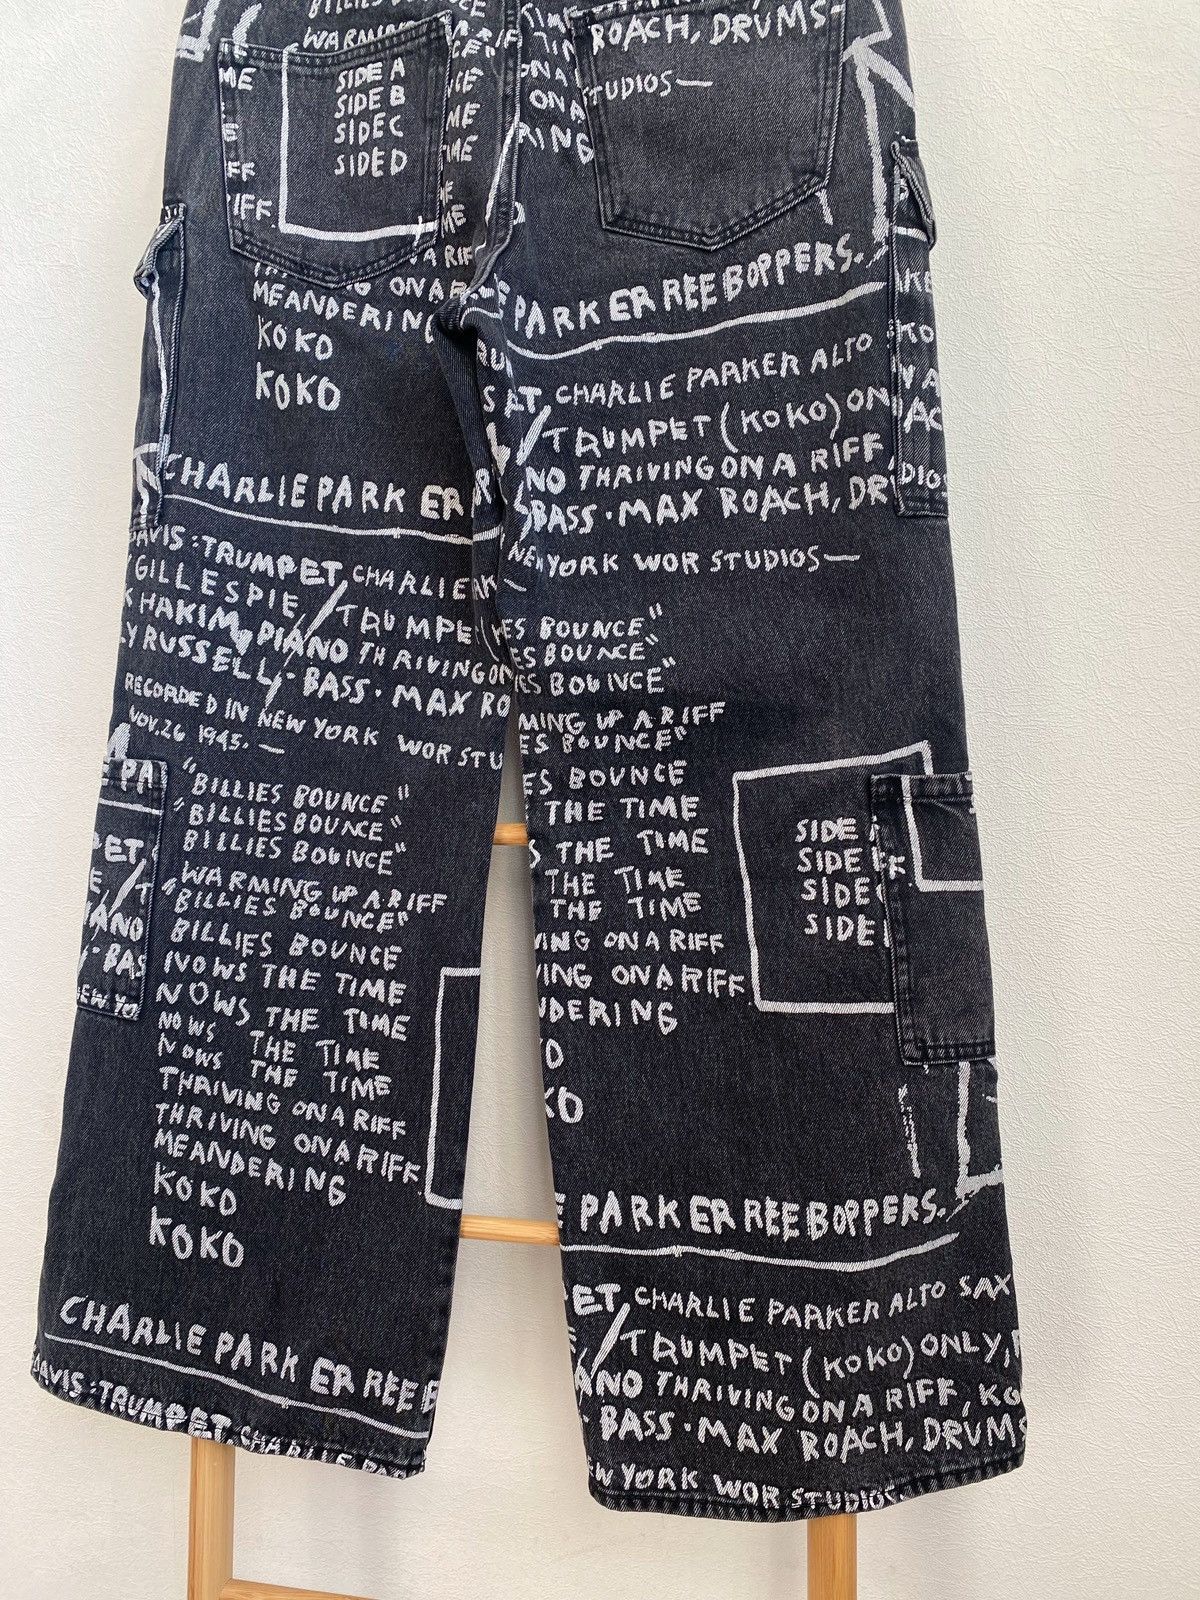 BILLIES BOUNCE
ROACH, DRUMS-
SIDE A
SIDE B
SIDE C
SIDE D
TUDIOS—
ME
IFF
MEANDERING
KOKO
KOKO
E PARK ER REE BOPPERS.
CHARLIE PARKER ALTO
TRUMPET (KOKO) ON
NO THRIVING ON A RIFF
BASS · MAX ROACH, DR
NEW YORK WOR STUDIOS—
CHARLIE PARK ER
DAVIS : TRUMPET, CHARLIE
GILLESPIE / TRUMPE
K HAKIM, PIANO THRIVING ON
LY RUSSELL, - BASS · MAX RO
RECORDED IN NEW YORK WOR STU
NOV. 26 1945. —
"BILLIES BOUNCE"
"BILLIES BOUNCE"
BILLIES BOUNCE"
WARMING UP A RIFF
"BILLIES BOUNCE"
BILLIES BOUNCE
NOWS THE TIME
NOWS THE TIME
NOWS THE TIME
NOWS THE TIME
THRIVING ON A RIFF
THRIVING ON A RIFF
MEANDERING
KOKO
KOKO
CHARLIE PARK ER REE B
DAVIS : TRUMPET, CHARLIE PAR
ES BOUNCE"
ES BOUNCE"
ES BOUNCE"
MING UP A RIFF
ES BOUNCE"
ES BOUNCE
THE TIME
S THE TIME
THE TIME
THE TIME
VING ON A RIFF
VING ON A RIFF
NDERING
KO
SIDE
SIDE
SIDE
SIDE
PA
ET,
IANO
- BAS
EW YO
E PARK ER REE BOPPERS.
ET, CHARLIE PARKER ALTO SAX
/ TRUMPET (KOKO) ONLY,
ANO THRIVING ON A RIFF, KO
- BASS · MAX ROACH, DRUMS
EW YORK WOR STUDIOS